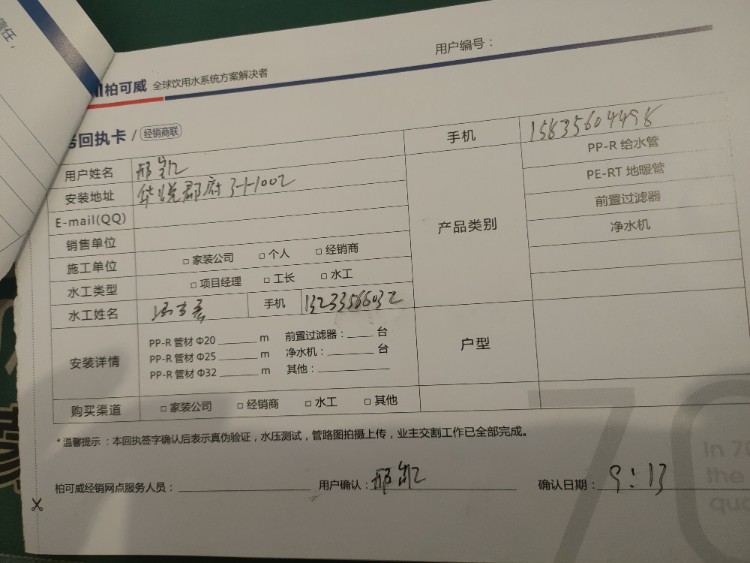 用户编号：
柏可威 全球饮用水系统方案解决者
回执卡 / 经销商联
用户姓名 邢凯 手机 15835604498
安装地址 华悦郡府 3-1-1002 产品类别 PP-R 给水管
E-mail(QQ) PE-RT 地暖管
销售单位 前置过滤器
施工单位 □ 家装公司 □ 个人 □ 经销商 净水机
水工类型 □ 项目经理 □ 工长 □ 水工
水工姓名 手机 13233566032
安装详情 户型
PP-R 管材 Φ20 ____ m 前置过滤器：____ 台
PP-R 管材 Φ25 ____ m 净水机：____ 台
PP-R 管材 Φ32 ____ m 其他：____
购买渠道 □ 家装公司 □ 经销商 □ 水工 □ 其他
* 温馨提示：本回执签字确认后表示真伪验证，水压测试，管路图拍摄上传，业主交割工作已全部完成。
柏可威经销网点服务人员：____ 用户确认：邢凯 确认日期：9：13
70
in 70
the
qua